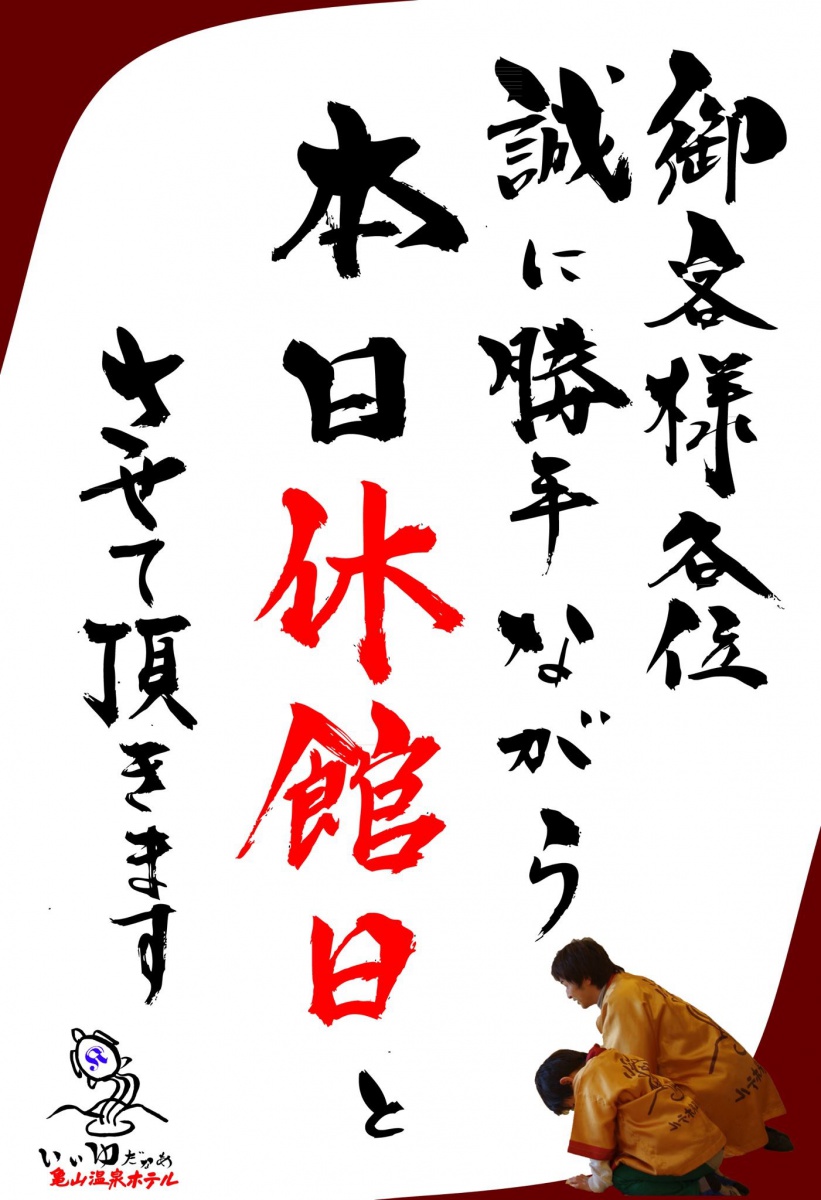 御客様各位
誠に勝手ながら
本日休館日と
させて頂きます
いいゆだかめ
亀山温泉ホテル